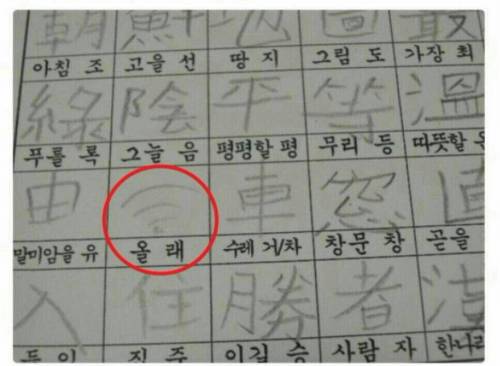 朝 鮮 地 圖 最
아침 조 고을 선 땅 지 그림 도 가장 최
綠 陰 平 等 溫
푸를 록 그늘 음 평평할 평 무리 등 따뜻할
由 車 窓 直
말미암을 유 올 래 수레 거/차 창문 창 곧을
入 住 勝 者 漢
이길 승 사람 자